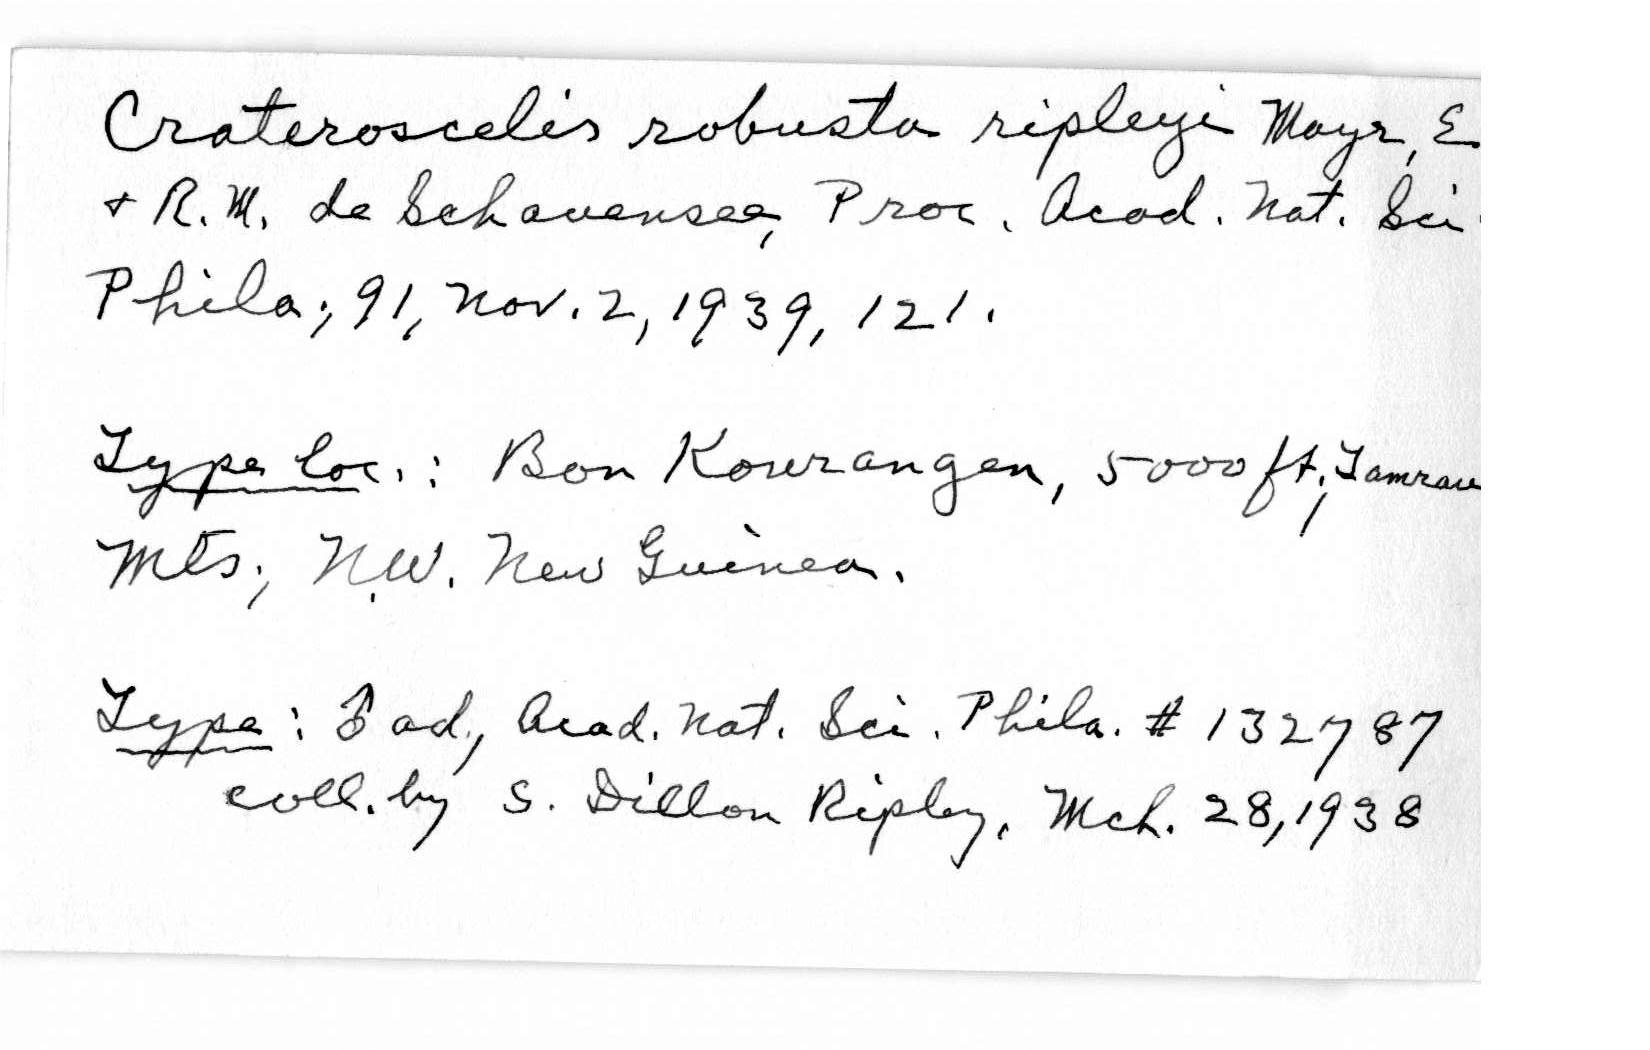 Crateroscelis robusta ripleyi Mayr, E.
+ R. M. de Schauensee, Proc. Acad. Nat. Sci.
Phila., 91, Nov. 2, 1939, 121.
Type loc.: Bon Kourangen, 5000 ft., Tamrau
Mts., N.W. New Guinea.
Type: ♂ ad., Acad. Nat. Sci. Phila. # 132787
coll. by S. Dillon Ripley, Mch. 28, 1938